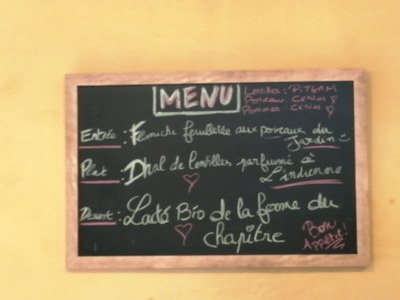 MENU
Lentilles : BIGAM
Poireau : CENH
Pommes : CENH
Entrée : Flamiche feuilletée aux poireaux du
Jardin
Plat : Dhal de lentilles parfumé à
L'indienne
Dessert : Lacté Bio de la ferme du
chapitre
Bon
Appétit !